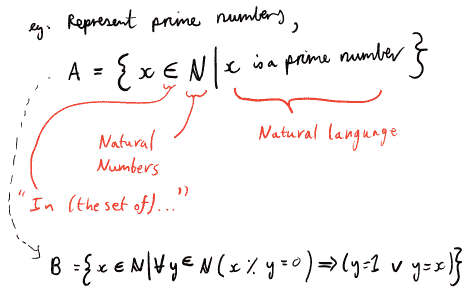 eg. Represent prime numbers,
A = { x ∈ N | x is a prime number }
Natural Numbers
Natural language
"In (the set of)..."
B = { x ∈ N | ∀ y ∈ N ( x % y = 0 ) ⇒ ( y = 1 ∨ y = x ) }